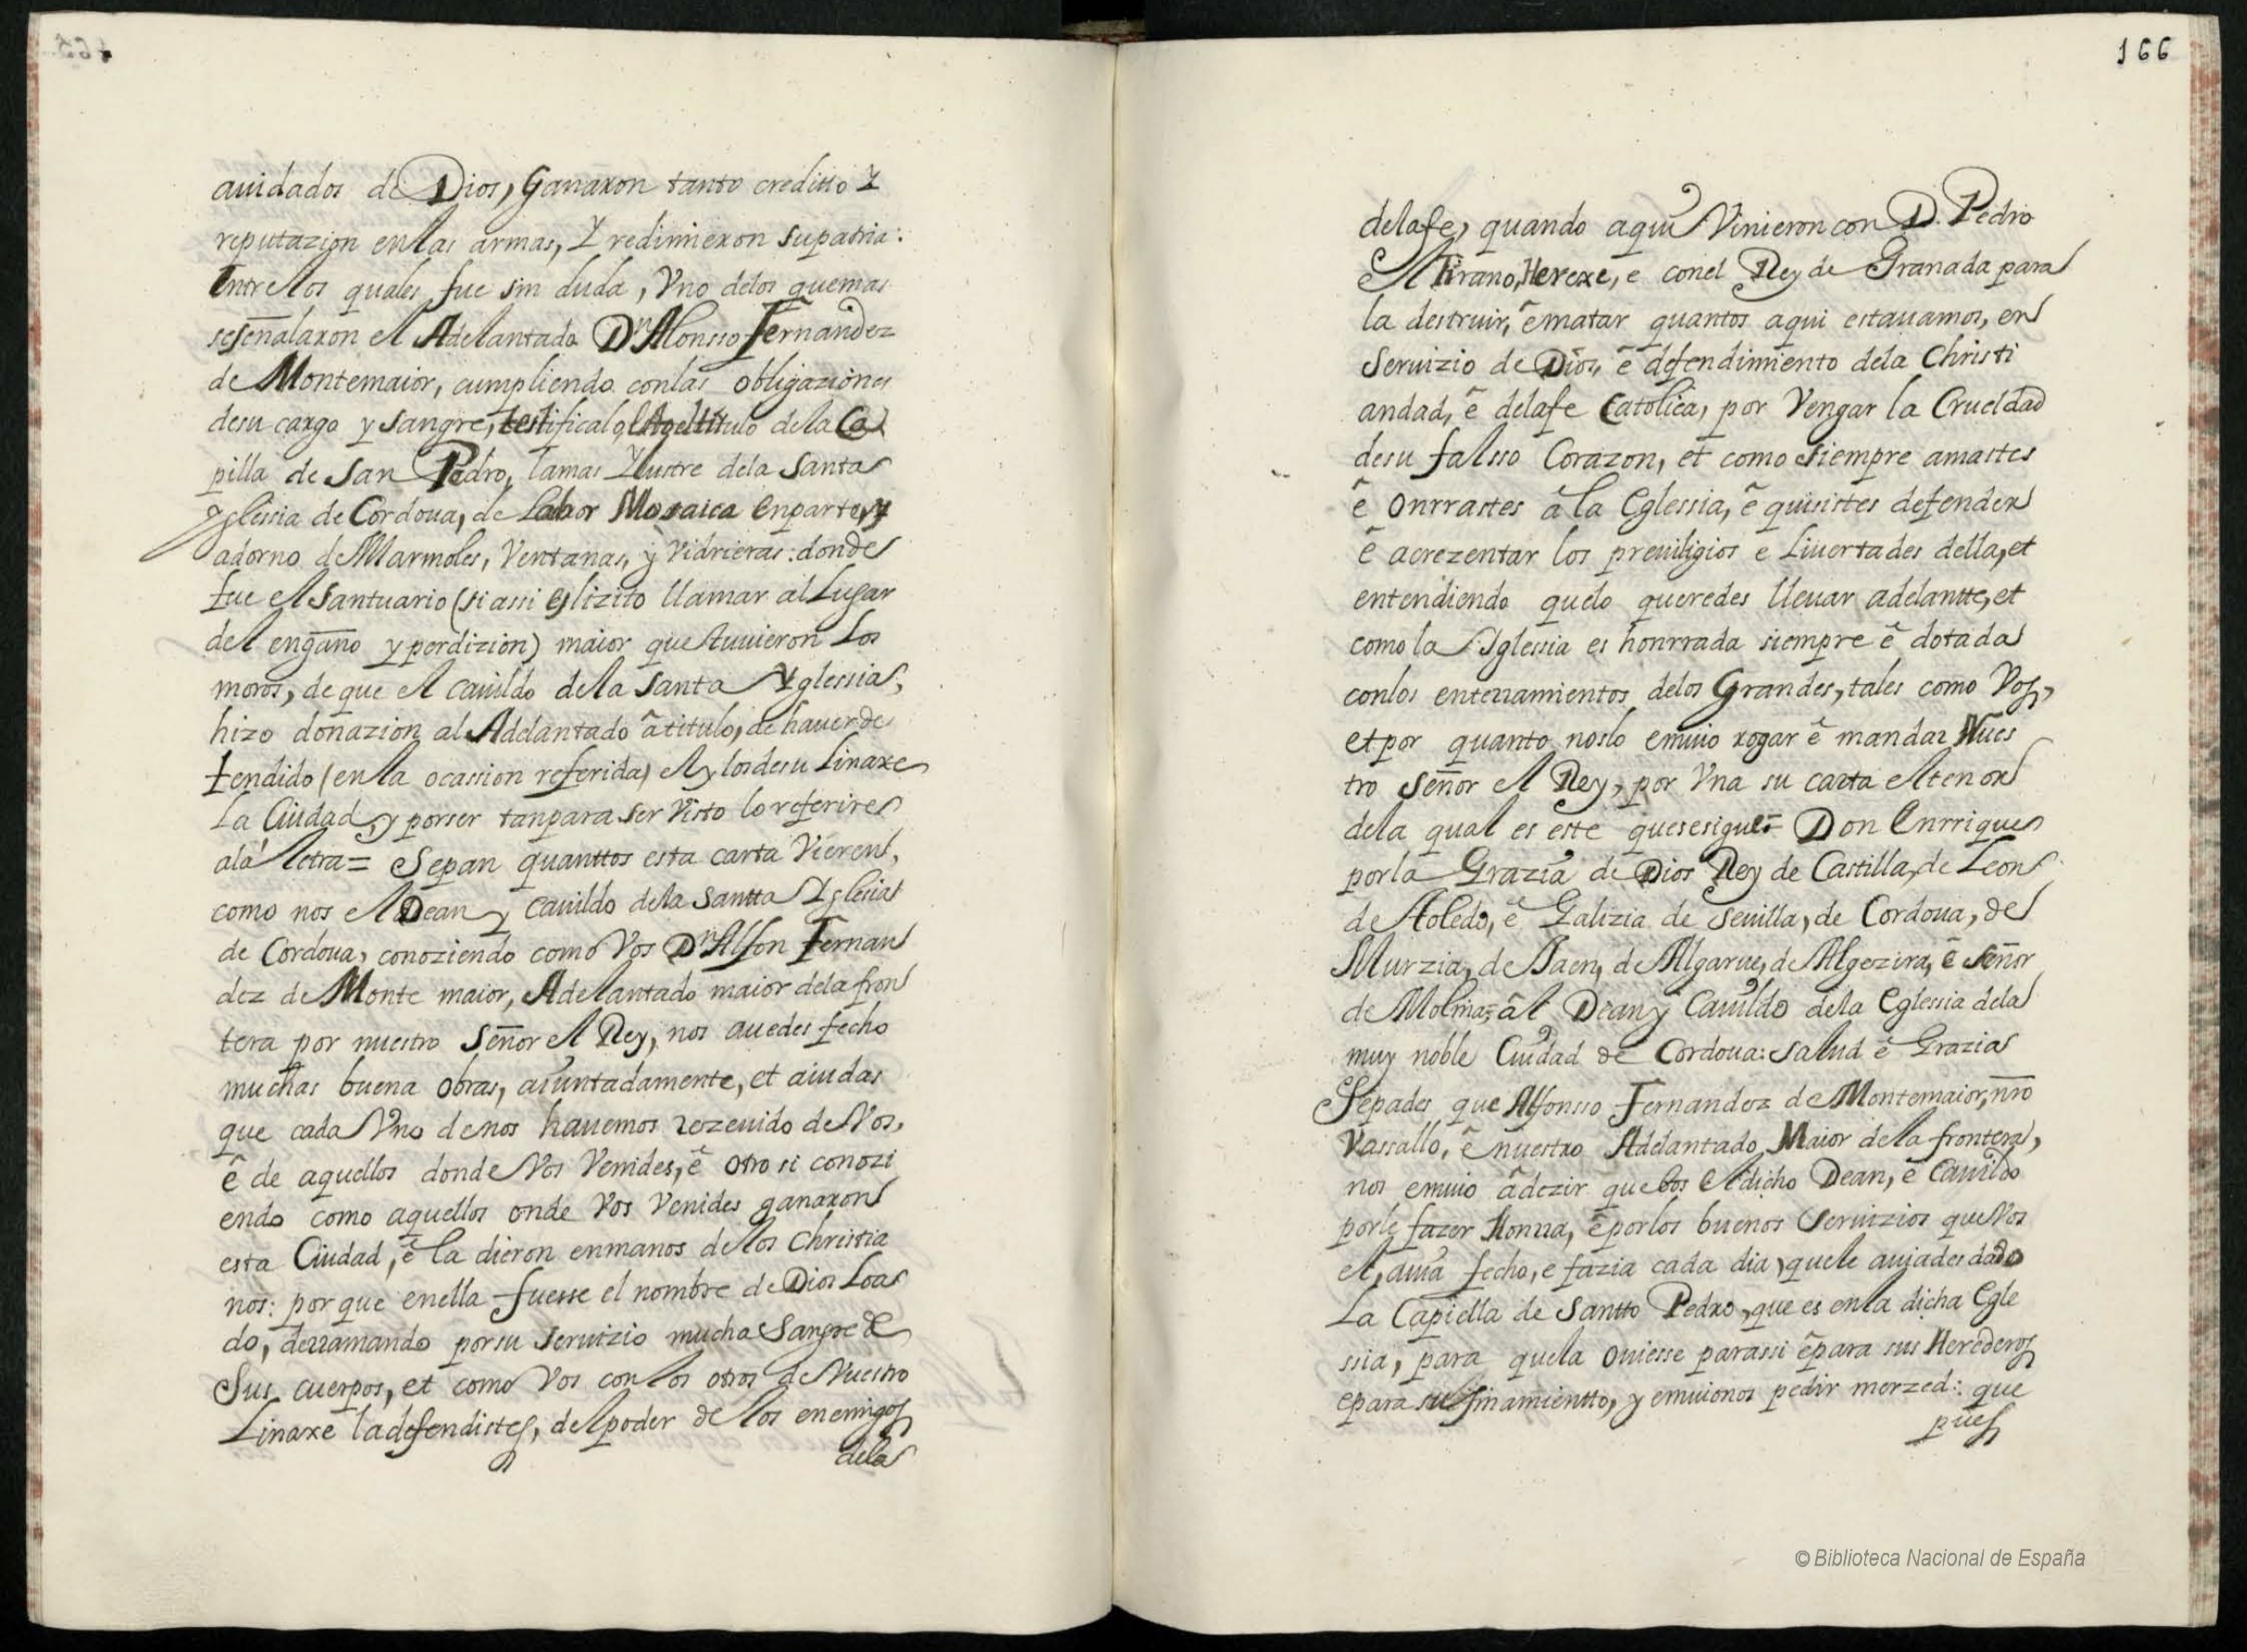 auidados de Dios, Ganaron tanto creditto Y
reputazion en las armas, Y redimieron su patria:
Entre los quales fue sin duda, Vno delos que mas
se señalaron el Adelantado Dn Alonsso Fernandez
de Montemaior, cumpliendo con las obligaziones
desu cargo y sangre, testificalo el titulo de la Ca
pilla de San Pedro, la mas Ylustre dela Santa
Yglesia de Cordoua, de labor Mosaica en parte, y
adorno de Marmoles, Ventanas, y Vidrieras: donde
fue el Santuario (si assi es lizito llamar al Lugar
del engaño y perdizion) maior que tuuieron los
moros, de que el cauildo dela Santa Yglessia,
hizo donazion al Adelantado â titulo, de hauer de
fendido (en la ocassion referida) el y los desu Linaxe
La Ciudad, y por ser tan para ser Visto lo referire
ala letra = Sepan quanttos esta carta Vieren,
como nos el Dean y cauildo dela Santta Yglesia
de Cordoua, conoziendo como Vos Dn Alfon Fernan
dez de Monte maior, Adelantado maior dela fron
tera por nuestro Señor el Rey, nos auedes fecho
muchas buena obras, aiuntadamente, et aiudas
que cada Vno de nos hauemos rezeuido de Vos,
ê de aquellos donde Vos Venides, ê otro si conozi
endo como aquellos onde Vos Venides ganaron
esta Ciudad, ê la dieron en manos de los Christia
nos: por que en ella fuesse el nombre de Dios Loa
do, derramando por su seruizio mucha Sangre de
Sus cuerpos, et como Vos con los otros de Vuestro
Linaxe la defendistes, del poder de los enemigos
dela
166
dela fe, quando aqui Vinieron con D. Pedro
el Tirano, Herexe, e con el Rey de Granada para
la destruir, ê matar quantos aqui estauamos, en
Seruizio de Dios, ê defendimiento dela Christi
andad, ê dela fe Catolica, por Vengar la Crueldad
desu falsso Corazon, et como siempre amastes
ê onrrastes â la Eglessia, ê quisistes defender
ê acrezentar los preuiligios e Liuertades della, et
entendiendo quelo queredes lleuar adelantte, et
como la Yglessia es honrrada siempre ê dotada
con los enterramientos delos Grandes, tales como Vos,
et por quanto noslo emuio rogar ê mandar Nues
tro Señor el Rey, por Vna su carta el tenor
dela qual es este que se sigue = Don Enrrique
por la Grazia de Dios Rey de Castilla, de Leon
de Toledo, ê Galizia de Seuilla, de Cordoua, de
Murzia, de Jaen, de Algarue, de Algezira, ê Señor
de Molina = âl Dean y Cauildo dela Eglessia dela
muy noble Ciudad de Cordoua: salud ê Grazia
Sepades que Alfonsso Fernandez de Montemaior, nro
Vassallo, ê nuestro Adelantado Maior de la frontera,
nos emuio â dezir que bos el dicho Dean, ê Cauildo
por le fazer Honrra, ê por los buenos Seruizios que Vos
el, auia fecho, e fazia cada dia, que le auiades dado
La Capiella de Santto Pedro, que es en la dicha Egle
ssia, para quela ouiesse para ssi ê para sus Herederos
e para su finamientto, y emuionos pedir merzed: que
pues
© Biblioteca Nacional de España